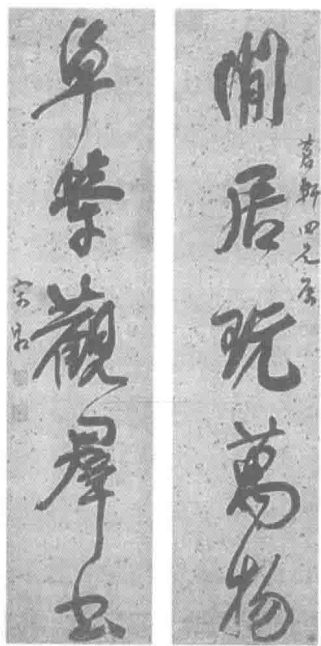 閒居玩萬物
軒四兄屬
卓犖觀羣書